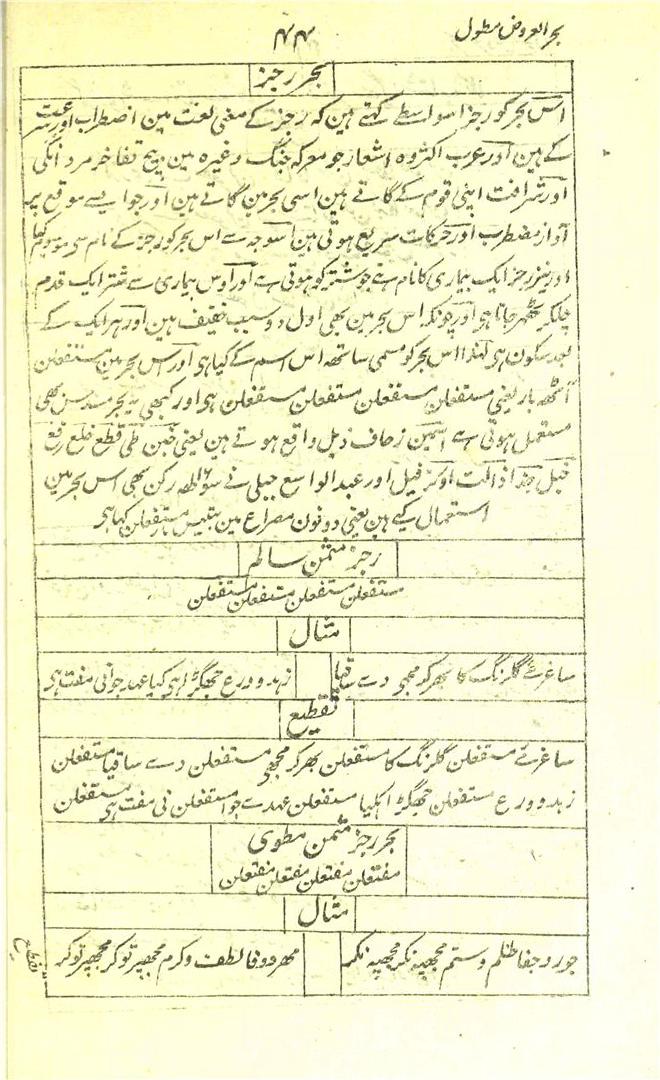 بحر العروض مطول
۴۴
بحر رجز
اس بحر کو رجز اسواسطے کہتے ہین کہ رجز کے معنی لغت مین اضطراب اور سرعت
کے ہین اور عرب اکثر وہ اشعار جو معرکہ جنگ وغیرہ مین بیچ تفاخر مردانگی
اور شرافت اپنی قوم کے گاتے ہین اسی بحر مین گاتے ہین اور جو ایسے موقع پر
آواز مضطرب اور حرکات سریع ہوتی ہین اسوجہ سے اس بحر کو رجز کے نام سی موسوم کیا
اور نیز رجز ایک بیماری کا نام ہے جو شتر کو ہوتی ہے اور اوس بیماری سے شتر ایک قدم
چلکر ٹھہر جاتا ہو اور چونکہ اس بحر مین بھی اول دو سبب خفیف ہین اور ہر ایک کے
بعد سکون ہی لہذا اس بحر کو مسمی ساتھہ اس اسم کے کیا ہی اور اس بحر مین مستفعلن
آٹھہ بار یعنی مستفعلن مستفعلن مستفعلن مستفعلن ہی اور کبھی یہ بحر مسدس بھی
مستعمل ہوتی ہے اسمین زحاف ذیل واقع ہوتے ہین یعنی خبن طی قطع خلع رفع
خبل حذذ اذالت اور ترفیل اور عبد الواسع جبلی نے سولطہ رکن بھی اس بحر مین
استعمال کیے ہین یعنی دونون مصراع مین بتیس بار مستفعلن کہا ہی
رجز مثمن سالم
مستفعلن مستفعلن مستفعلن مستفعلن
مثال
ساغر مئے گلرنگ کا بھر کر مجھی دے ساقیا
زہد و ورع جھگڑا ہی کیا عہد جوانی مفت ہی
تقطیع
ساغر مئے مستفعلن گلرنگ کا مستفعلن بھر کر مجھی مستفعلن دے ساقیا مستفعلن
زہد و ورع مستفعلن جھگڑا ہکیا مستفعلن عہدے جوا مستفعلن نی مفت ہی مستفعلن
بحر رجز مثمن مطوی
مفتعلن مفتعلن مفتعلن مفتعلن
مثال
جور و جفا ظلم و ستم مجھپہ نکر مجھپہ نکر
مہر و وفا لطف و کرم مجھپر تو کر مجھپر تو کر
تقطیع